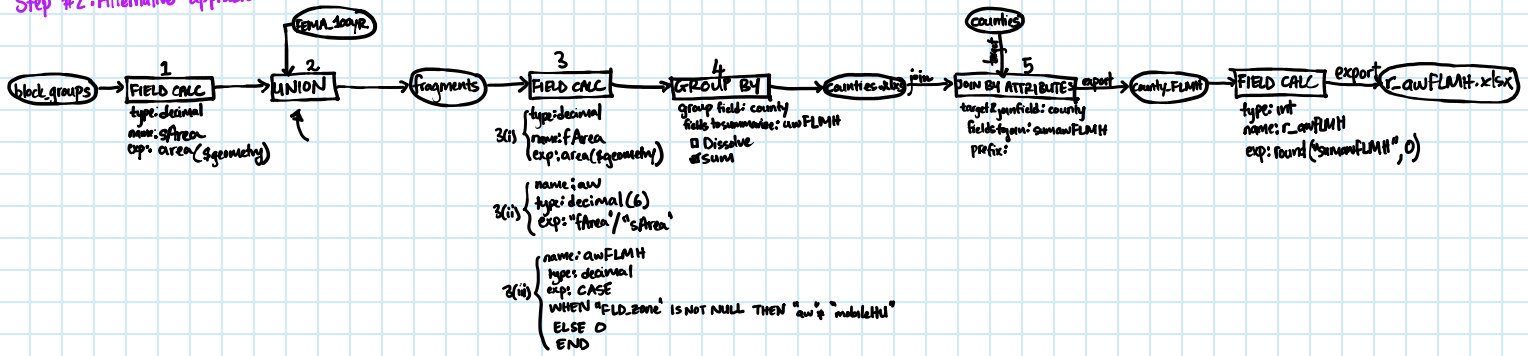 Step #2: Alternative approach
FEMA_100yR
counties
block_groups
1
FIELD CALC
type: decimal
name: sArea
exp: area($geometry)
2
UNION
fragments
3
FIELD CALC
3(i)
type: decimal
name: fArea
exp: area($geometry)
3(ii)
name: aw
type: decimal(6)
exp: "fArea"/"sArea"
3(iii)
name: awFLMH
type: decimal
exp: CASE
WHEN "FLD_Zone" IS NOT NULL THEN "aw" * "mobileHU"
ELSE 0
END
4
GROUP BY
group field: county
fields to summarize: awFLMH
Dissolve
sum
counties.xlsx
join
5
JOIN BY ATTRIBUTES
target & join field: county
fields to join: sumawFLMH
prefix:
export
county_FLMH
FIELD CALC
type: int
name: r_awFLMH
exp: round("sumawFLMH", 0)
export
r_awFLMH.xlsx